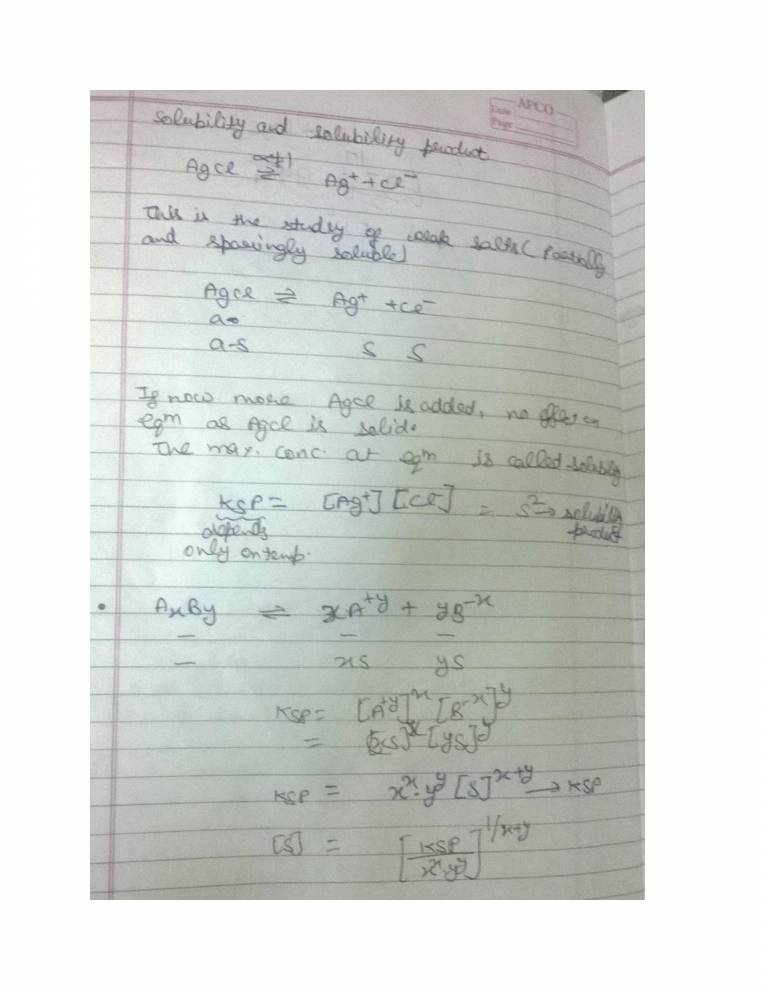 APCO
Date
Page
Solubility and solubility product
AgCl ⇌ Ag⁺ + Cl⁻
This is the study of weak salts (Partially
and sparingly soluble)
AgCl ⇌ Ag⁺ + Cl⁻
a
a-s s s
If now more AgCl is added, no effect on
eqm as AgCl is solid.
The max. conc. at eqm is called solubility
KSP = [Ag⁺] [Cl⁻] = S² → solubility
depends product
only on temp.
• AxBy ⇌ xA⁺ʸ + yB⁻ˣ
— — —
— xs ys
KSP = [A⁺ʸ]ˣ [B⁻ˣ]ʸ
= [xs]ˣ [ys]ʸ
KSP = xˣ·yʸ [S]ˣ⁺ʸ → KSP
[S] = [KSP / xˣ·yʸ]^1/x+y